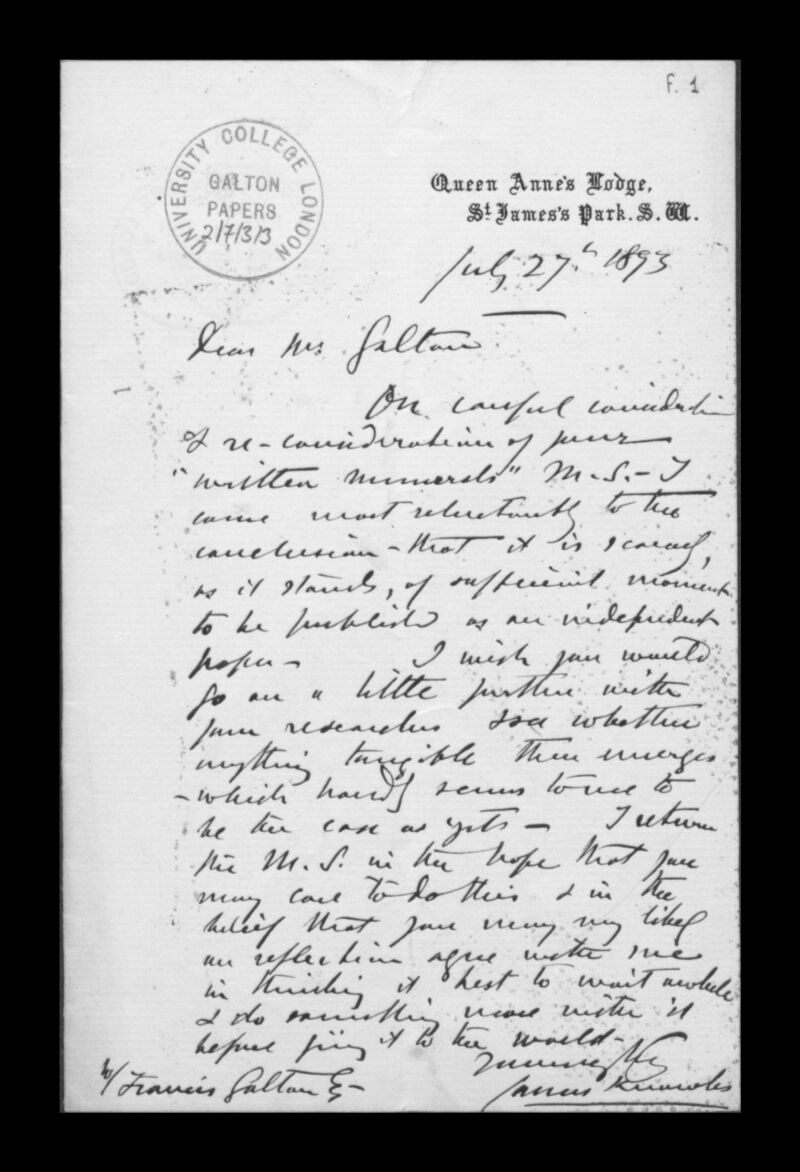 f. 1
UNIVERSITY COLLEGE LONDON
GALTON
PAPERS
2/7/3/3
Queen Anne's Lodge,
St James's Park. S. W.
July 27th 1893
Dear Mr Galton
On careful consideration
& re-consideration of your
"written numerals" M.S. - I
come most reluctantly to the
conclusion - that it is scarcely,
as it stands, of sufficient moment
to be published as an independent
paper - I wish you would
go on a little further with
your researches & see whether
anything tangible then emerges
- which hardly seems to me to
be the case as yet - I return
the M.S. in the hope that you
may care to do this & in the
belief that you may very likely
on reflection agree with me
in thinking it best to wait awhile
& do something more with it
before giving it to the world -
Yours very truly
James Knowles
Francis Galton Esq